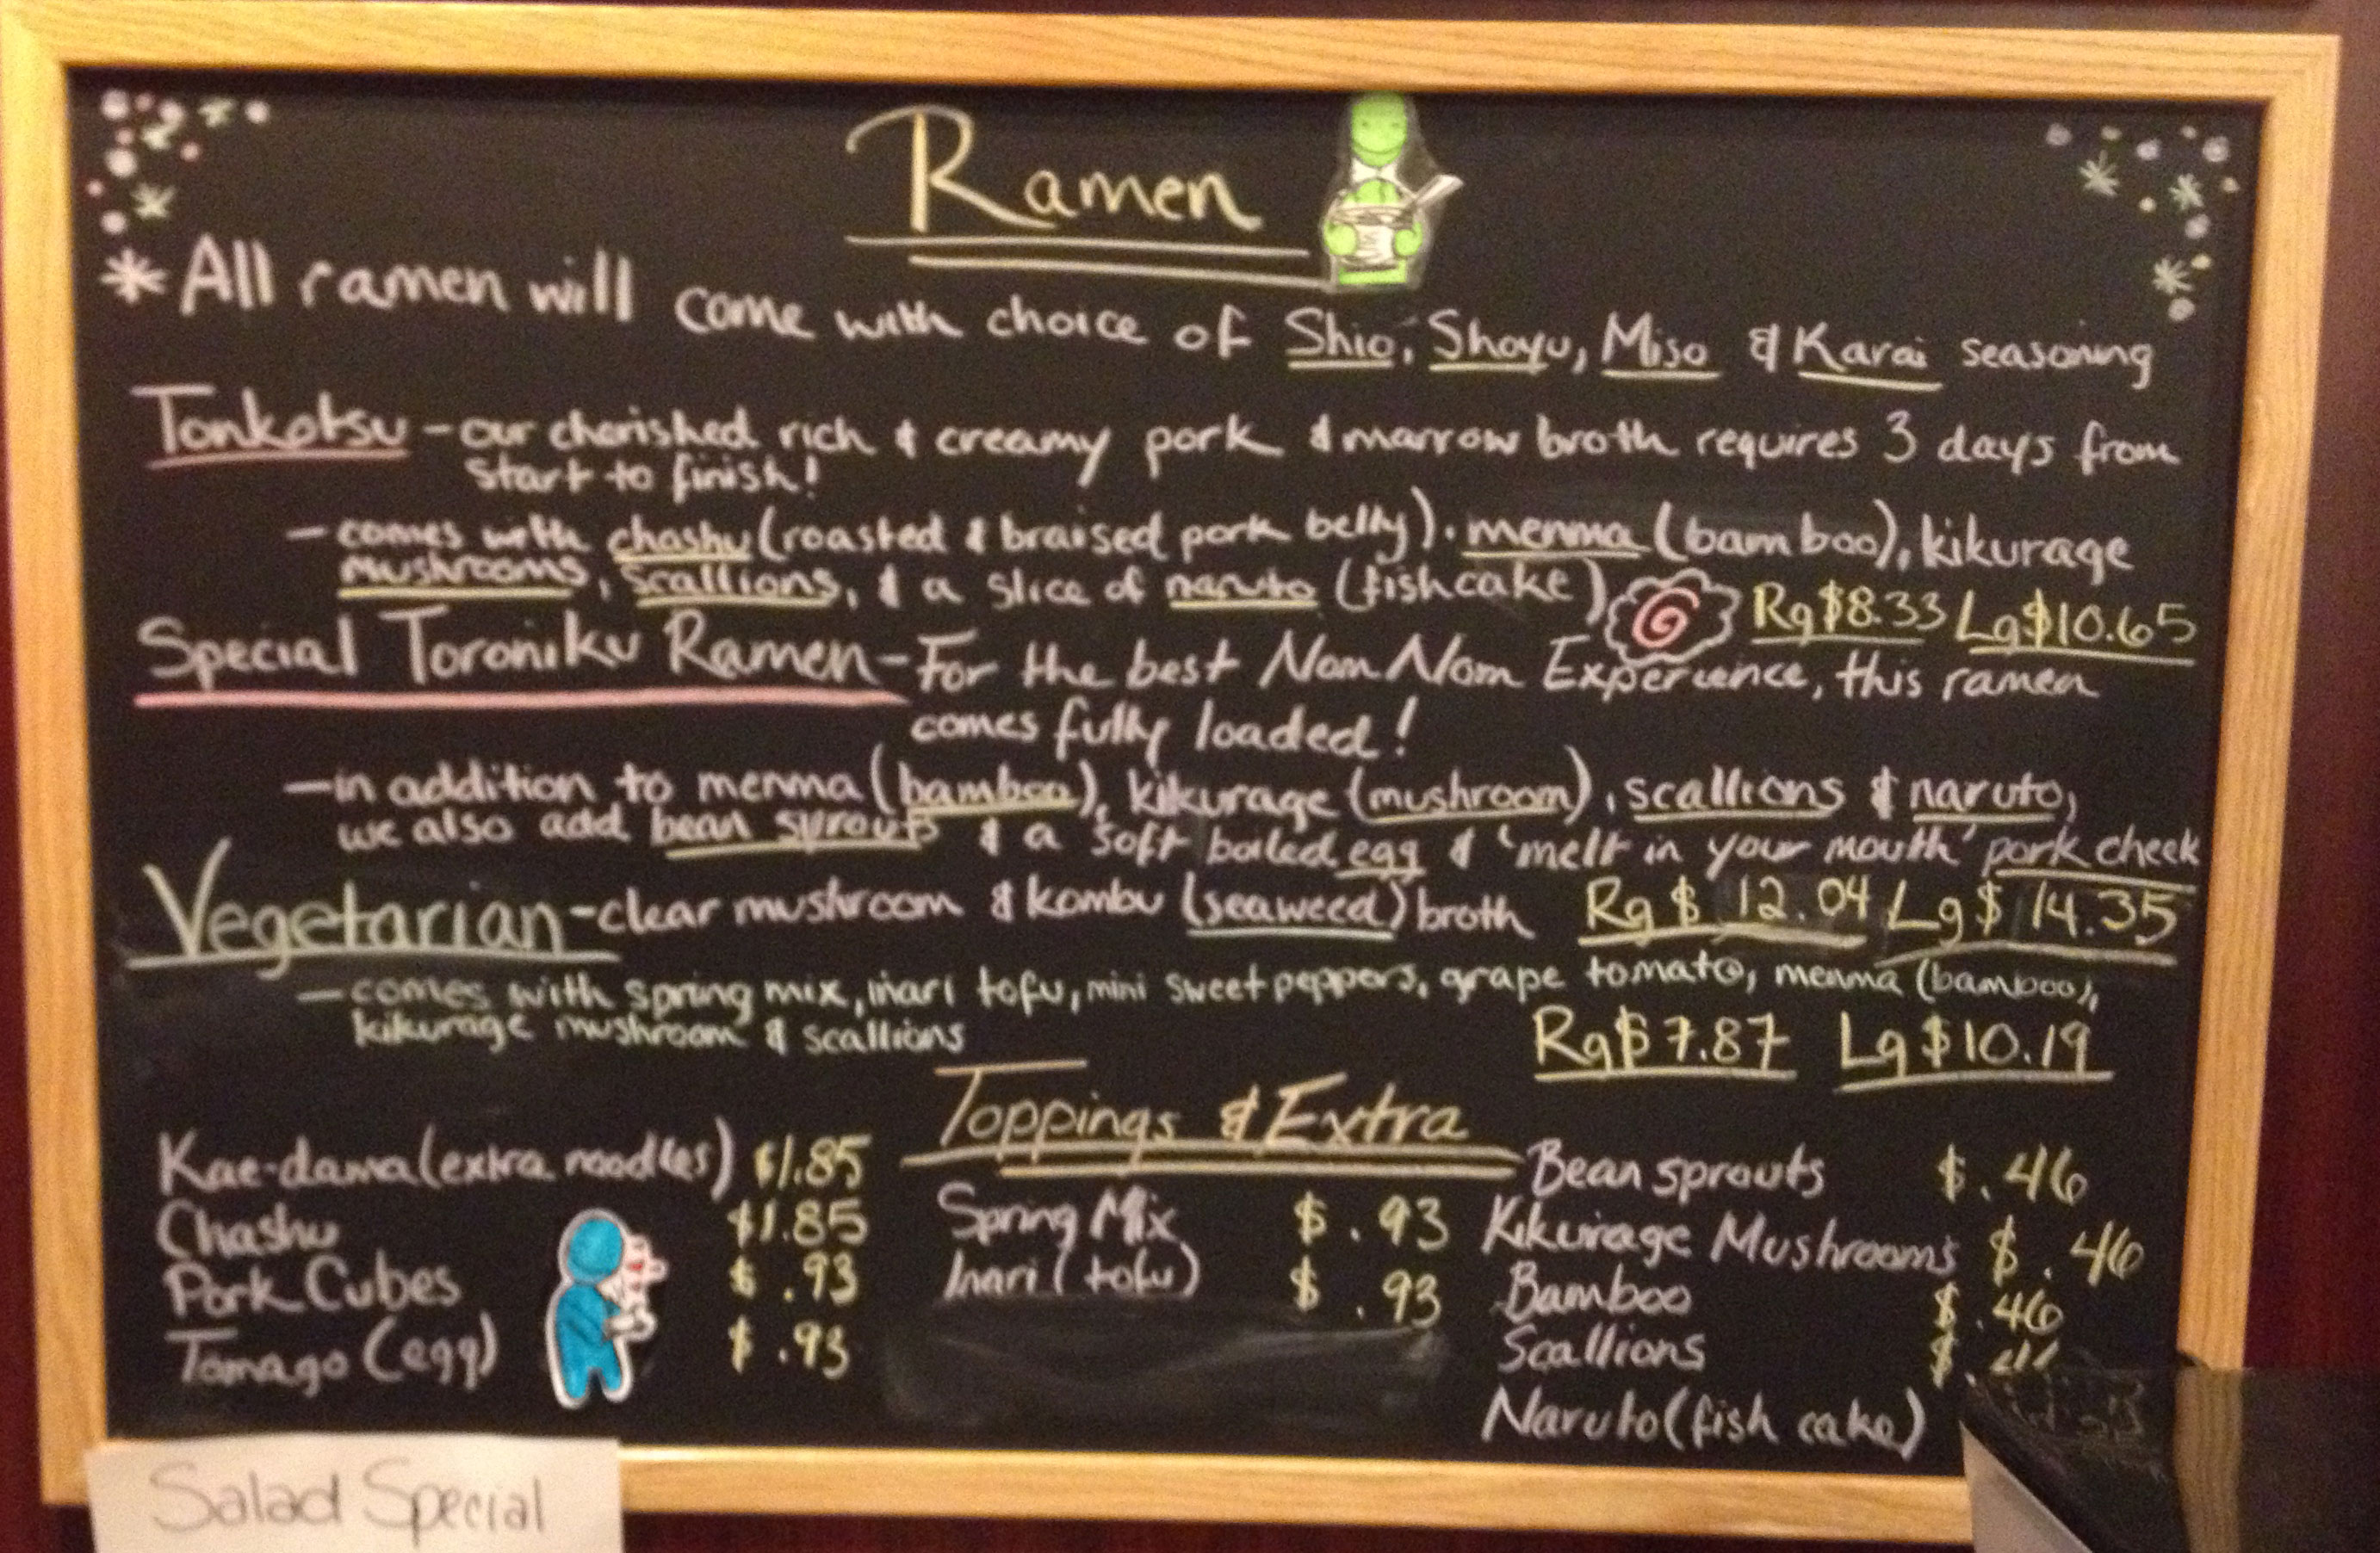 Ramen
* All ramen will come with choice of Shio, Shoyu, Miso & Karai seasoning
Tonkotsu - our cherished rich & creamy pork & marrow broth requires 3 days from
start to finish!
- comes with chashu (roasted & braised pork belly), menma (bamboo), kikurage
mushrooms, scallions, & a slice of naruto (fishcake) Rg $8.33 Lg $10.65
Special Toroniku Ramen - For the best Nom Nom Experience, this ramen
comes fully loaded!
- in addition to menma (bamboo), kikurage (mushroom), scallions & naruto,
we also add bean sprouts & a soft boiled egg & 'melt in your mouth' pork cheek
Rg $ 12.04 Lg $ 14.35
Vegetarian - clear mushroom & kombu (seaweed) broth
- comes with spring mix, inari tofu, mini sweet peppers, grape tomato, menma (bamboo),
kikurage mushroom & scallions
Rg $7.87 Lg $10.19
Toppings & Extra
Kae-dama (extra noodles) $1.85
Chashu $1.85
Pork Cubes $ .93
Tomago (egg) $ .93
Spring Mix $ .93
Inari (tofu) $ .93
Bean sprouts $ .46
Kikurage Mushrooms $ .46
Bamboo $ .46
Scallions $
Naruto (fish cake)
Salad Special